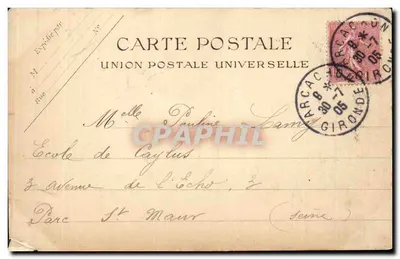 CARTE POSTALE
UNION POSTALE UNIVERSELLE
ARCACHON
8 * 30 -7 05
GIRONDE
ARCACHON
8 * 30 -7 05
GIRONDE
M
à
Rue
N°
Melle Pauline Lamy
Ecole de Caylus
3 avenue de l'Echo, 3
Parc St Maur (Seine)